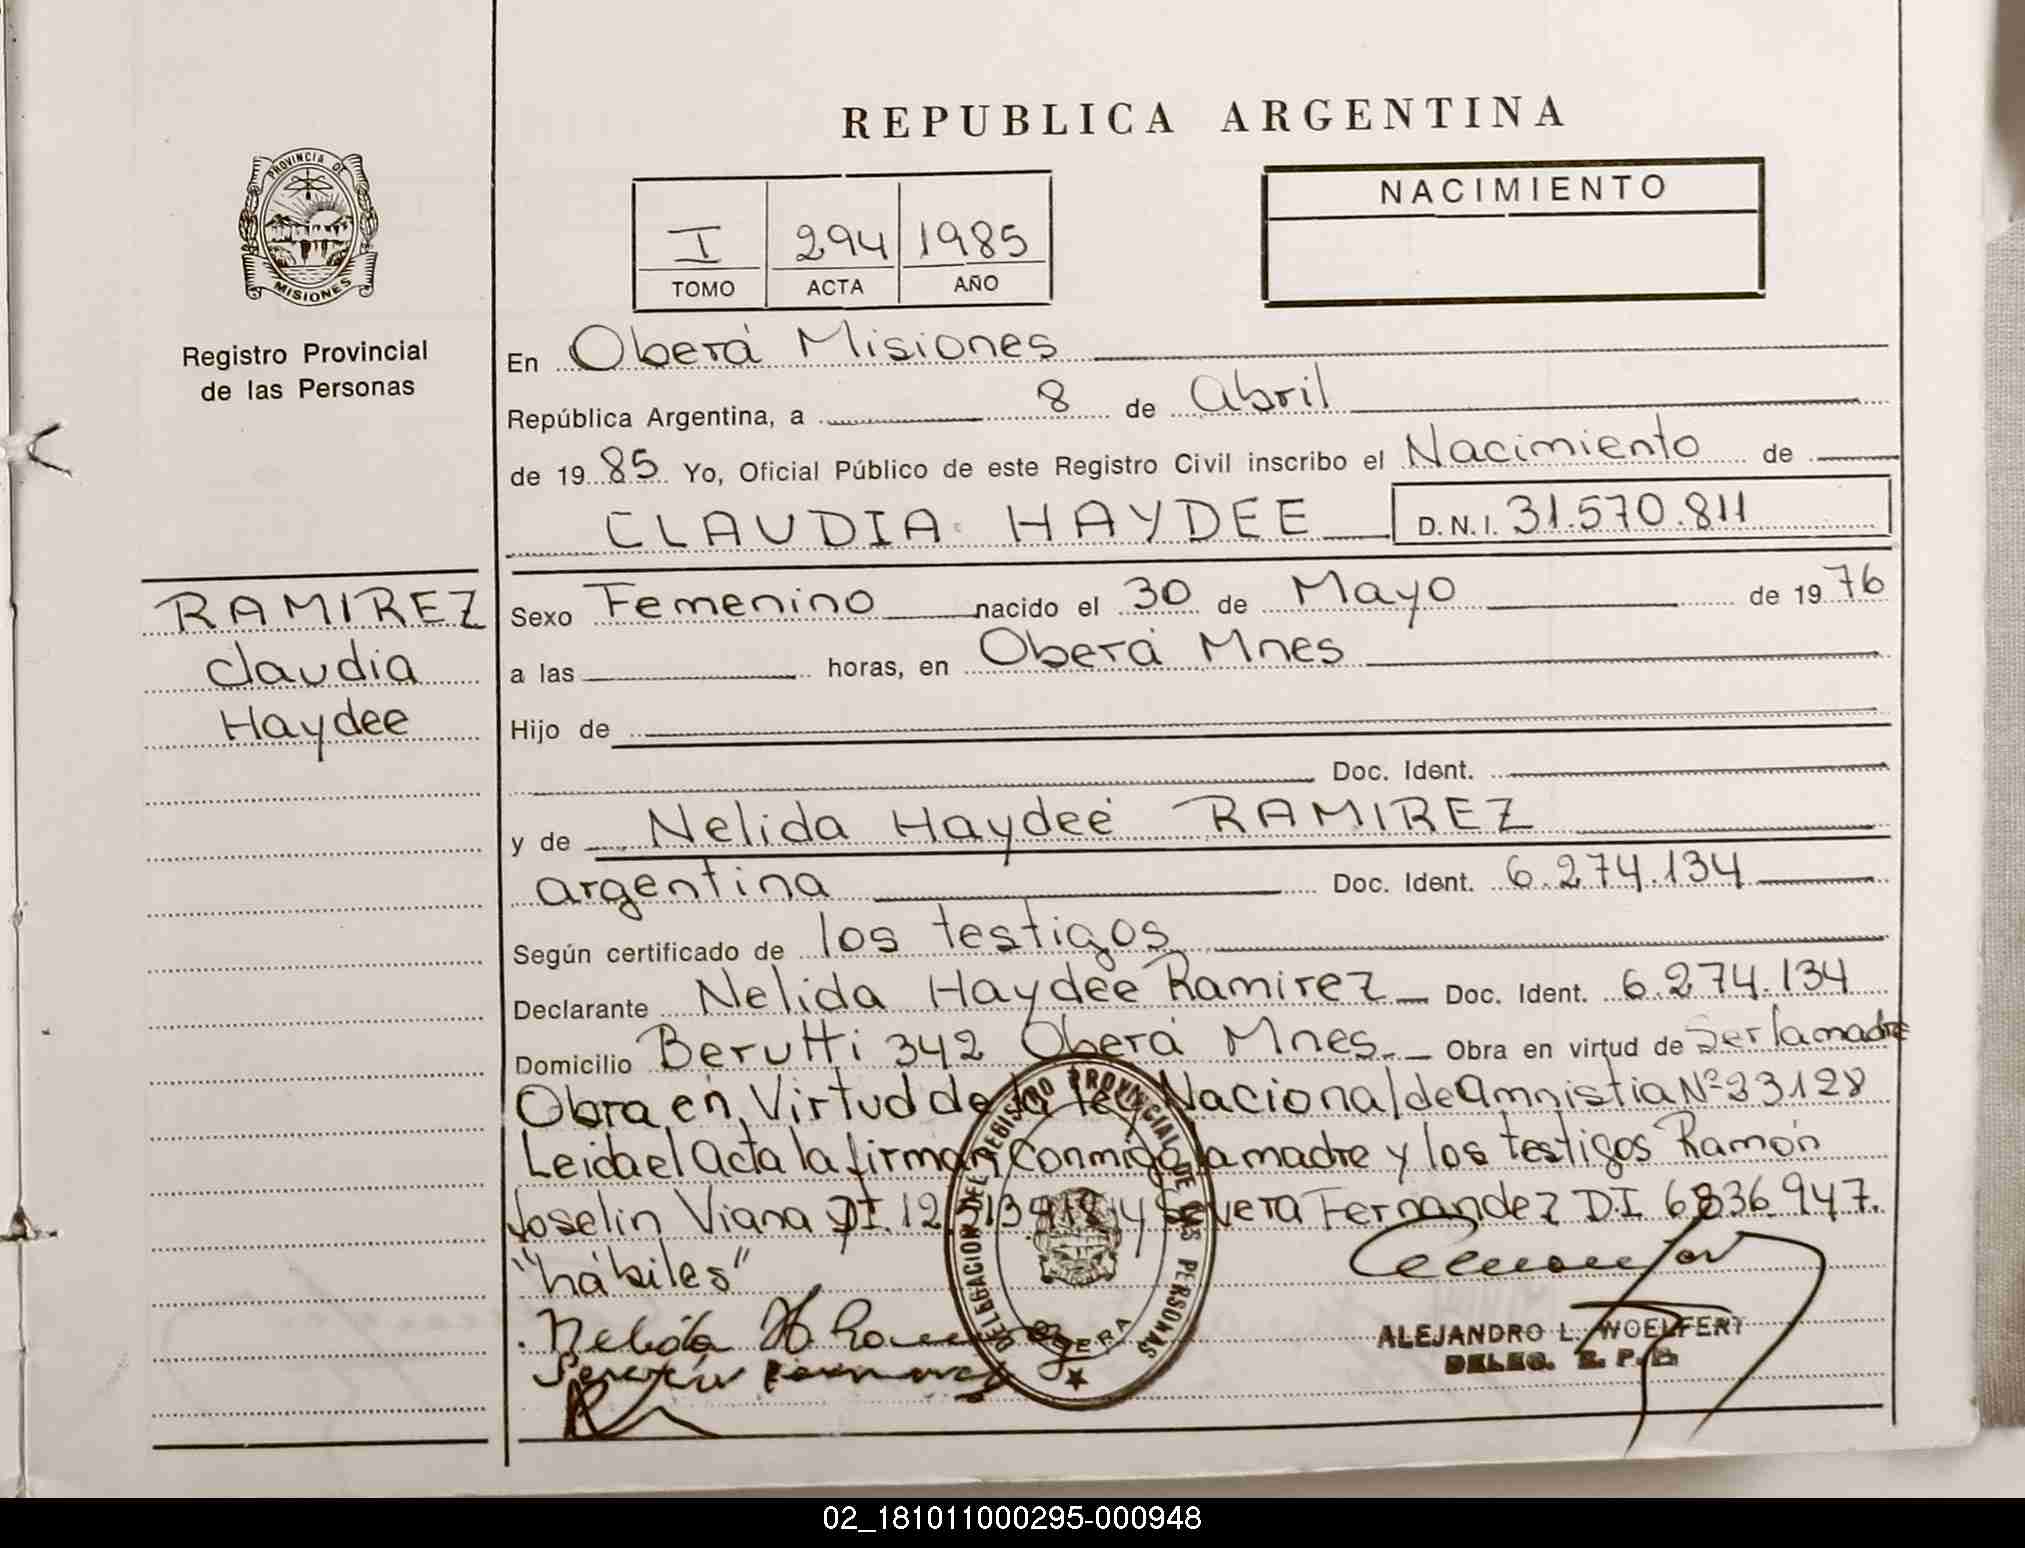 REPUBLICA ARGENTINA
PROVINCIA DE
MISIONES
Registro Provincial
de las Personas
I 294 1985
TOMO ACTA AÑO
NACIMIENTO
En Oberá Misiones
República Argentina, a 8 de Abril
de 19 85 Yo, Oficial Público de este Registro Civil inscribo el Nacimiento de
CLAUDIA HAYDEE D.N.I. 31.570.811
RAMIREZ
Claudia
Haydee
Sexo Femenino nacido el 30 de Mayo de 19 76
a las horas, en Oberá Mnes
Hijo de
Doc. Ident.
y de Nelida Haydeé RAMIREZ
argentina Doc. Ident. 6.274.134
Según certificado de los testigos
Declarante Nelida Haydeé Ramirez Doc. Ident. 6.274.134
Domicilio Berutti 342 Oberá Mnes. Obra en virtud de Ser la madre
Obra en Virtud de la ley Nacional de Amnistia Nº 23128
Leida el Acta la firman conmigo la madre y los testigos Ramón
Joselin Viana DI. 12 y Severa Fernandez D.I 6836947.
"hábiles"
DELEGACION DEL REGISTRO PROVINCIAL DE LAS PERSONAS
OBERA
ALEJANDRO L. WOELFERT
DELEG. R. P. P.
02_181011000295-000948